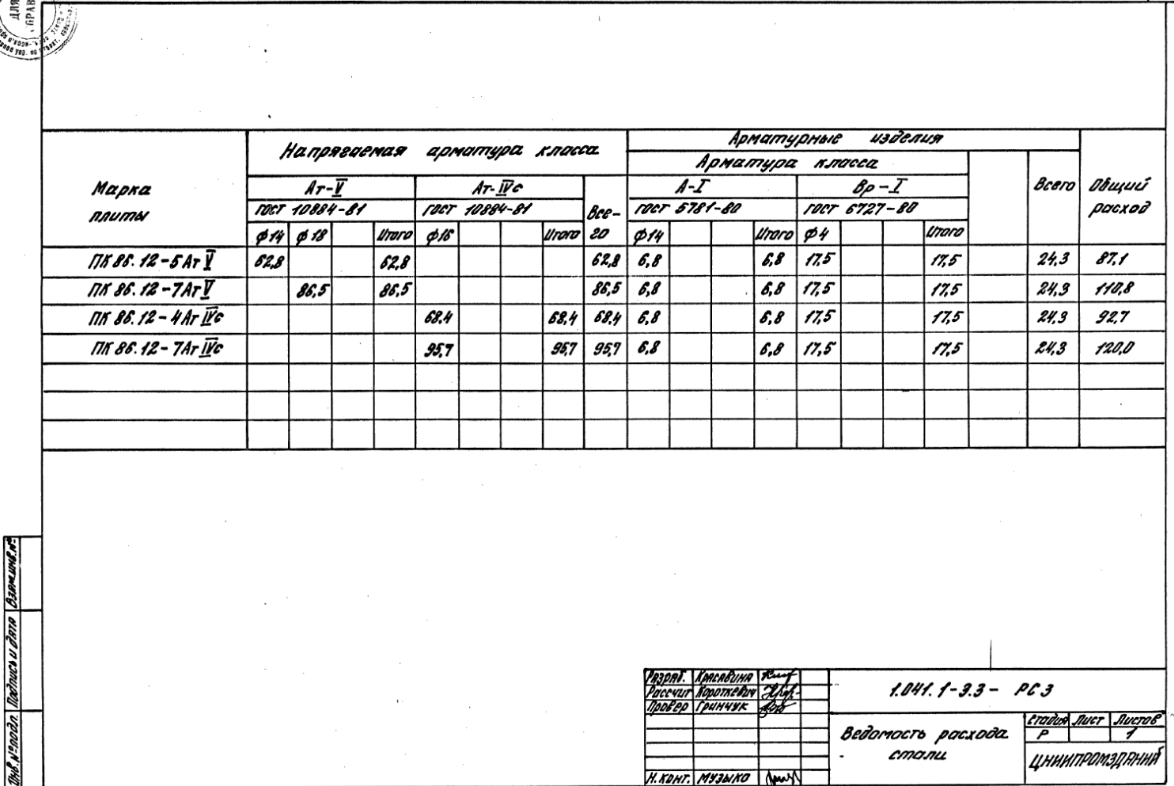 Напрягаемая арматура класса
Арматурные изделия
Арматура класса
Марка плиты
Ат-V
Ат-IVс
Все-
го
А-I
Вр-I
Всего
Общий
расход
ГОСТ 10884-81
ГОСТ 10884-81
ГОСТ 5781-80
ГОСТ 6727-80
ф14 ф18 Итого ф16 Итого ф14 Итого ф4 Итого
ПК 86.12-5АтV 62,8 62,8 62,8 6,8 6,8 17,5 17,5 24,3 87,1
ПК 86.12-7АтV 86,5 86,5 86,5 6,8 6,8 17,5 17,5 24,3 110,8
ПК 86.12-4АтIVс 68.4 68,4 68,4 6,8 6,8 17,5 17,5 24,3 92,7
ПК 86.12-7АтIVс 95,7 95,7 95,7 6,8 6,8 17,5 17,5 24,3 120,0
Взам.инв.№
Подпись и дата
Инв.№подл.
Разраб. Красавина
Рассчит Короткевич
Провер Гринчук
Н.конт. Музыко
1.041.1-3.3- РС3
Ведомость расхода
стали
Стадия Лист Листов
Р 1
ЦНИИПРОМЗДАНИЙ